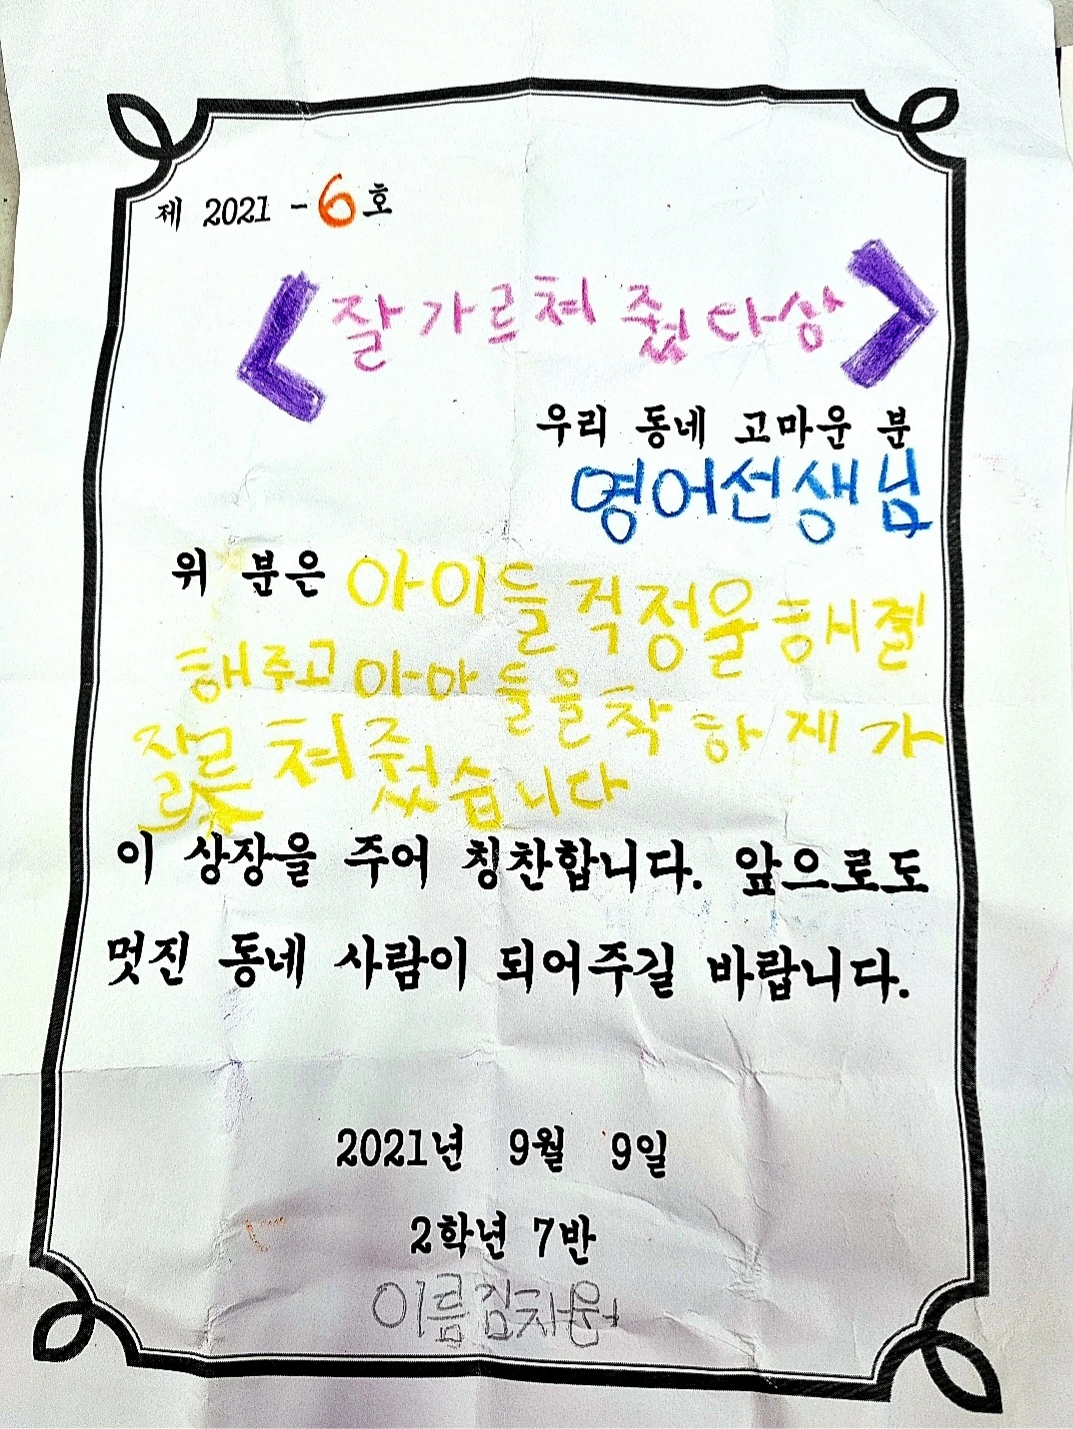 제 2021 - 6호
<잘가르쳐 줬다상>
우리 동네 고마운 분
영어선생님
위 분은 아이들 걱정을 해결
해주고 아마 들을 착 하 제 가
쳐 줬습니다
이 상장을 주어 칭찬합니다. 앞으로도
멋진 동네 사람이 되어주길 바랍니다.
2021년 9월 9일
2학년 7반
이름김차원